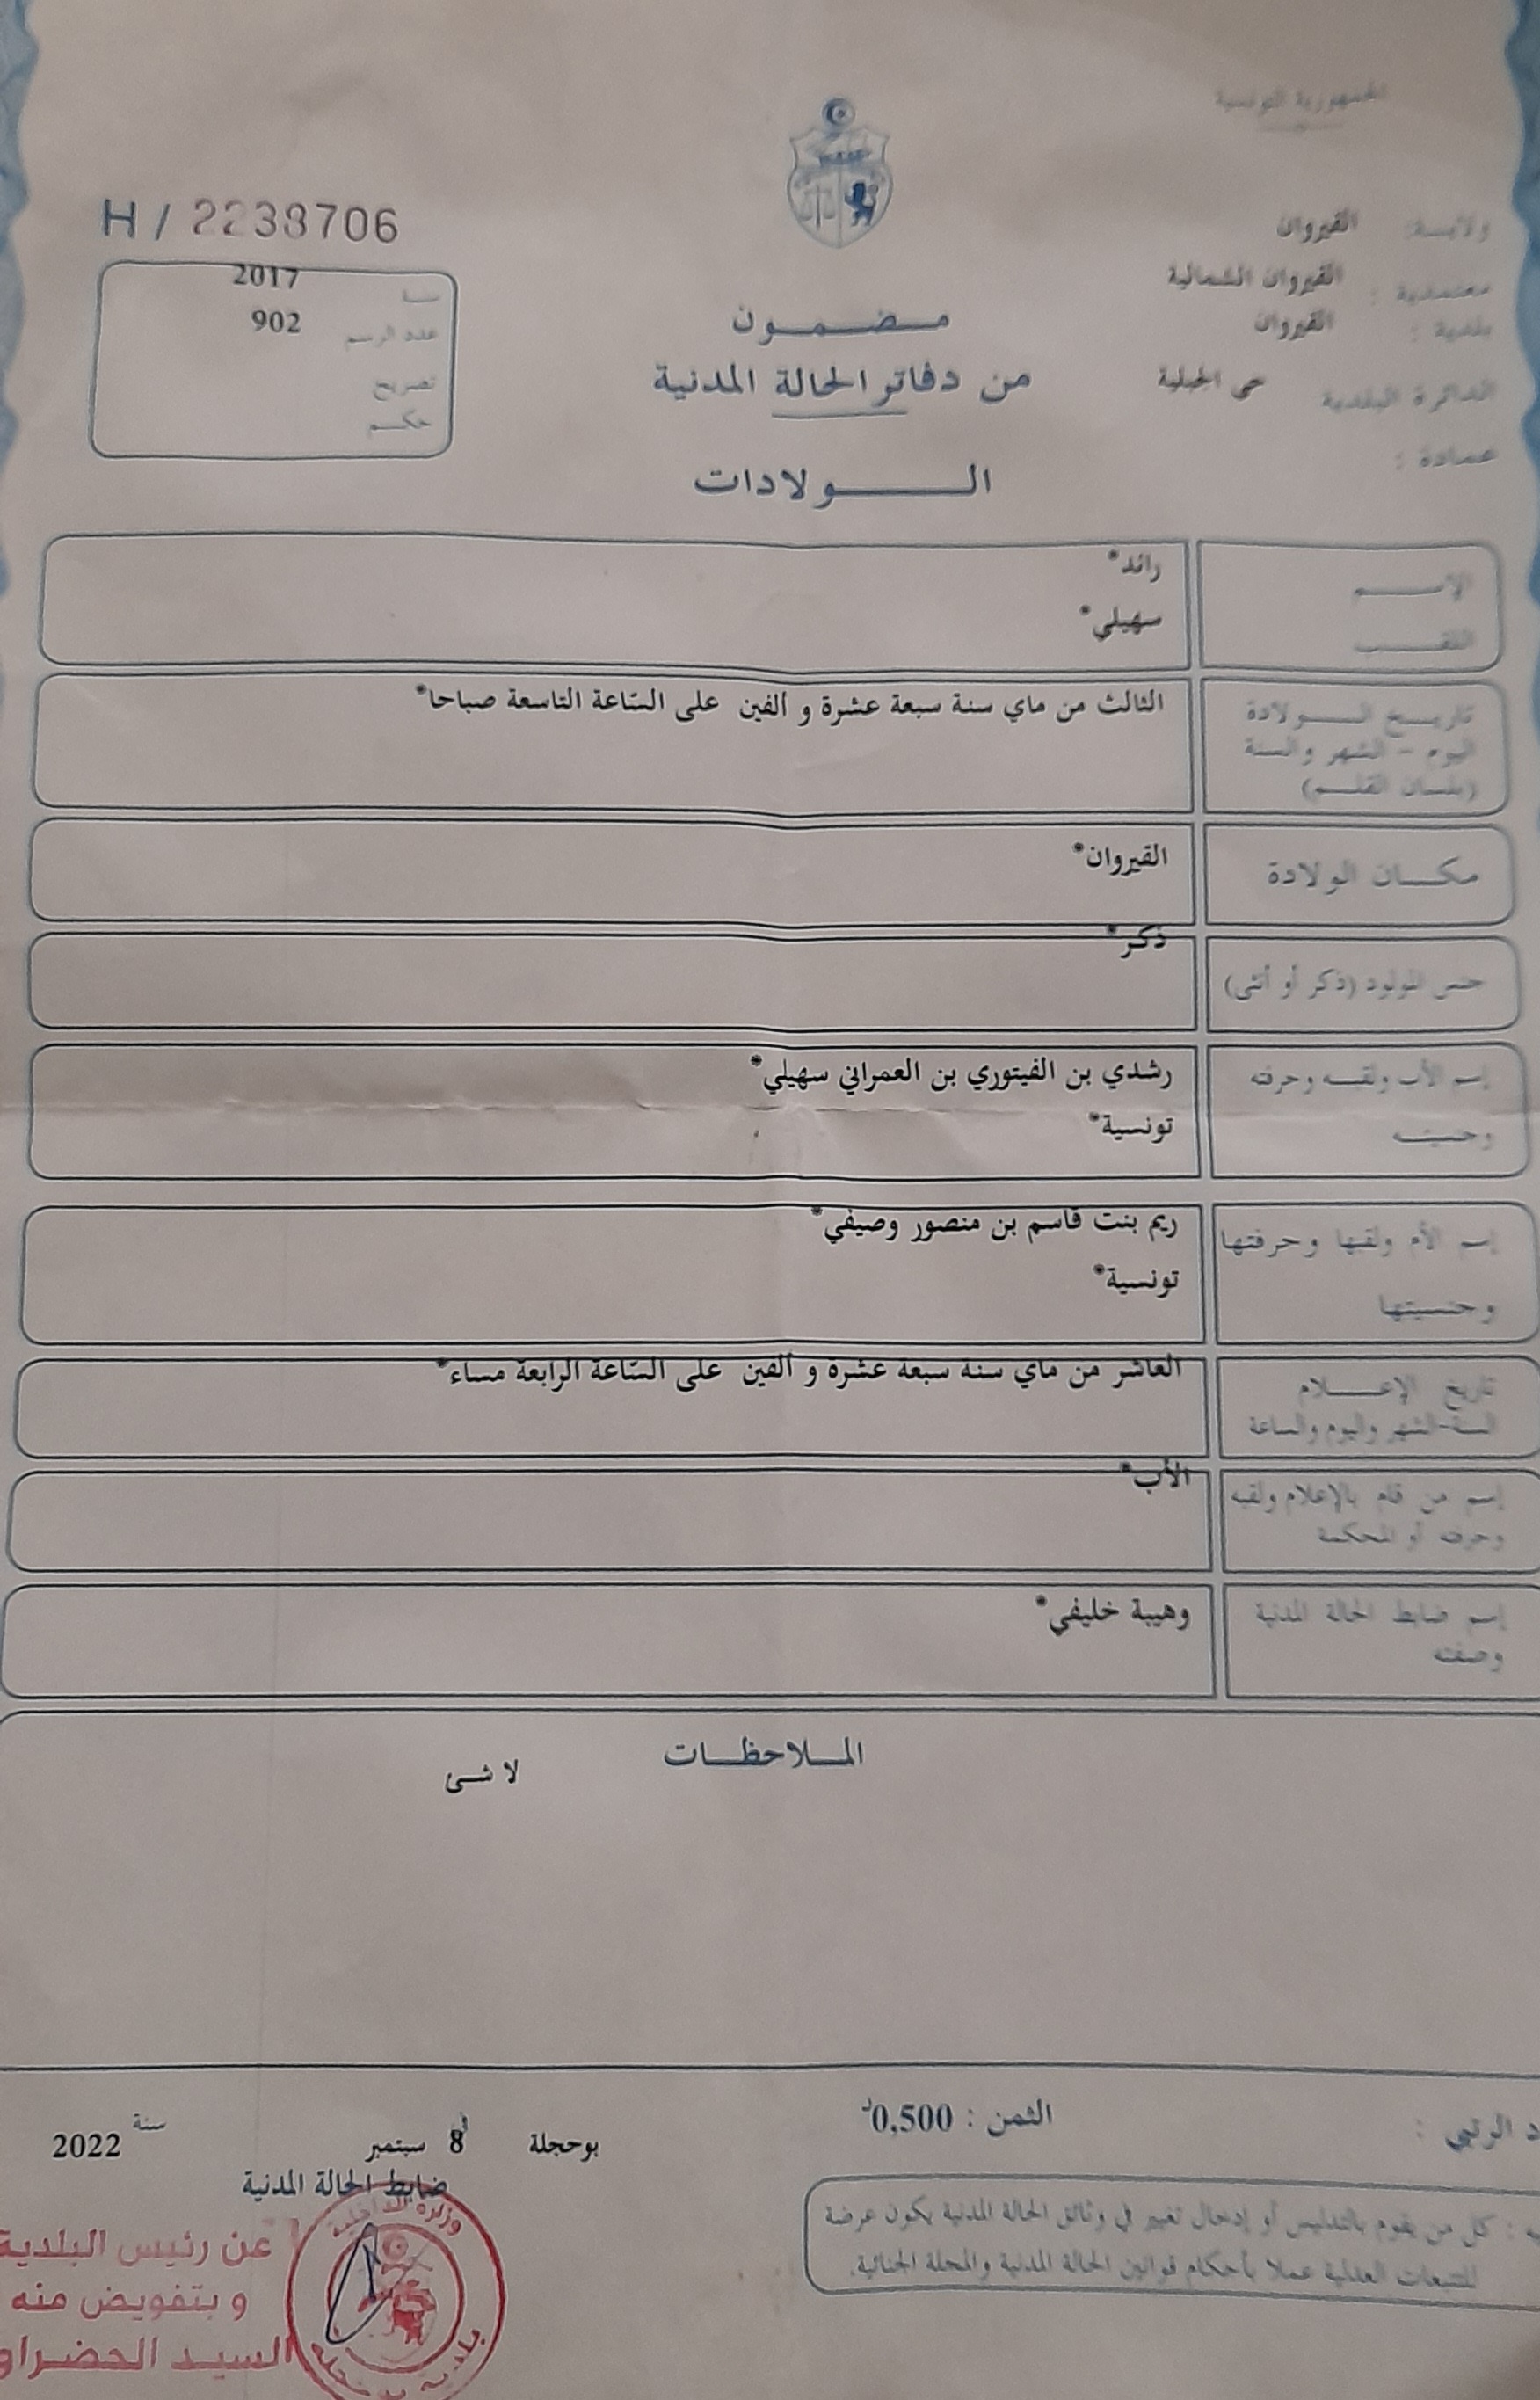 الجمهورية التونسية
H / 2238706
ولايـة: القيروان
معتمدية : القيروان الشمالية
بلدية : القيروان
الدائرة البلدية حى الجبلية
عمادة :
سنة 2017
عدد الرسم 902
تصريح
حكم
مضمون
من دفاتر الحالة المدنية
الولادات
الإسم رائد*
اللقب سهيلي*
تاريخ الولادة
اليوم - الشهر والسنة
(بلسان القلم)
الثالث من ماي سنة سبعة عشرة و ألفين على السّاعة التاسعة صباحا*
مكان الولادة القيروان*
جنس المولود (ذكر أو أنثى) ذكر*
إسم الأب ولقبه وحرفته رشدي بن الفيتوري بن العمراني سهيلي*
وجنسيته تونسية*
إسم الأم ولقبها وحرفتها ريم بنت قاسم بن منصور وصيفي*
وجنسيتها تونسية*
تاريخ الإعلام
السنة-الشهر واليوم والساعة
العاشر من ماي سنة سبعة عشرة و ألفين على السّاعة الرابعة مساء*
إسم من قام بالإعلام ولقبه
وحرفته أو المحكمة
الأب*
إسم ضابط الحالة المدنية
وصفته
وهيبة خليفي*
الملاحظات
لا شئ
الرتبي :
الثمن : 0,500د
بوحجلة في 8 سبتمبر سنة 2022
ضابط الحالة المدنية
كل من يقوم بالتدليس أو إدخال تغيير في وثائق الحالة المدنية يكون عرضة
للتتبعات العدلية عملا بأحكام قوانين الحالة المدنية والمجلة الجنائية.
وزارة الداخلية
عن رئيس البلدية
و بتفويض منه
السيد